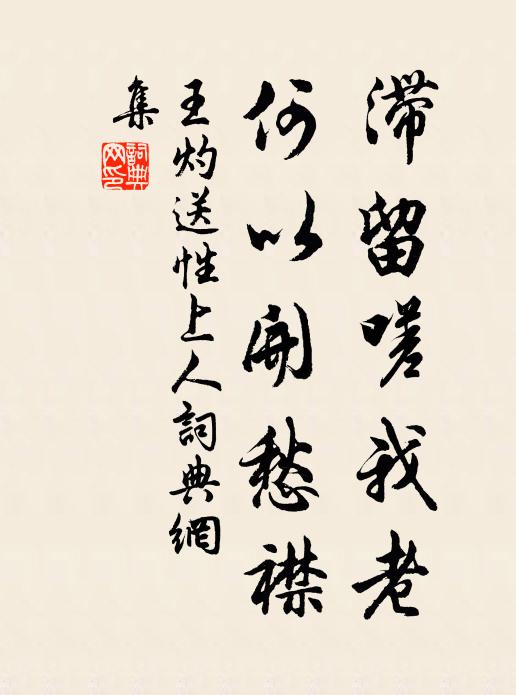 滞留嗟我老
何以開愁襟
王灼送性上人詞典網
集
詞典
网印